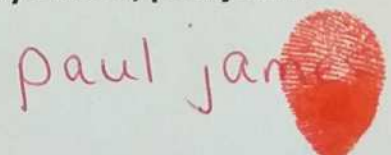 paul jame